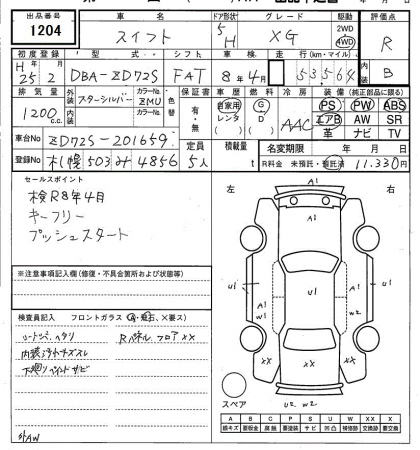 出品番号 車名 ドア形状 グレード 駆動 評価点
1204 スイフト 5 H XG 2WD 4WD R
初度登録 型式 シフト 車検 走行(km・マイル) 内装
H25 2 DBA-ZD72S FAT 8年4月 53,564 B
排気量 外装 カラーNo. 色替 保証書 車歴 燃料 冷房 装備(純正部品に限る)
1200 c.c. スターシルバー ZMU 有・無 自家用 レンタ G D AAC PS PW ABS
エアB AW SR
革 ナビ TV
車台No ZD72S-201659 定員 積載量 名変期限 年 月 日
登録No 札幌503み4856 5人 t R料金 未預託・預託済 11,330円
セールスポイント
検R8年4月
キーフリー
プッシュスタート
左 右
A1
U1 A1 U1 A1 U1
W2 W2
XX XX
スペア U2 W2
※注意事項記入欄(修復・不具合箇所および状態等)
検査員記入 フロントガラス(A・飛石、X要ス)
シートシミ、ヘタリ Rパネル、フロアXX
内装汚れキズスレ
下廻りペイントサビ
外AW
A B C P S U W X XX
線キズ 要板金 腐蝕 要塗装 サビ 凹凸 補修跡 要交換 交換済